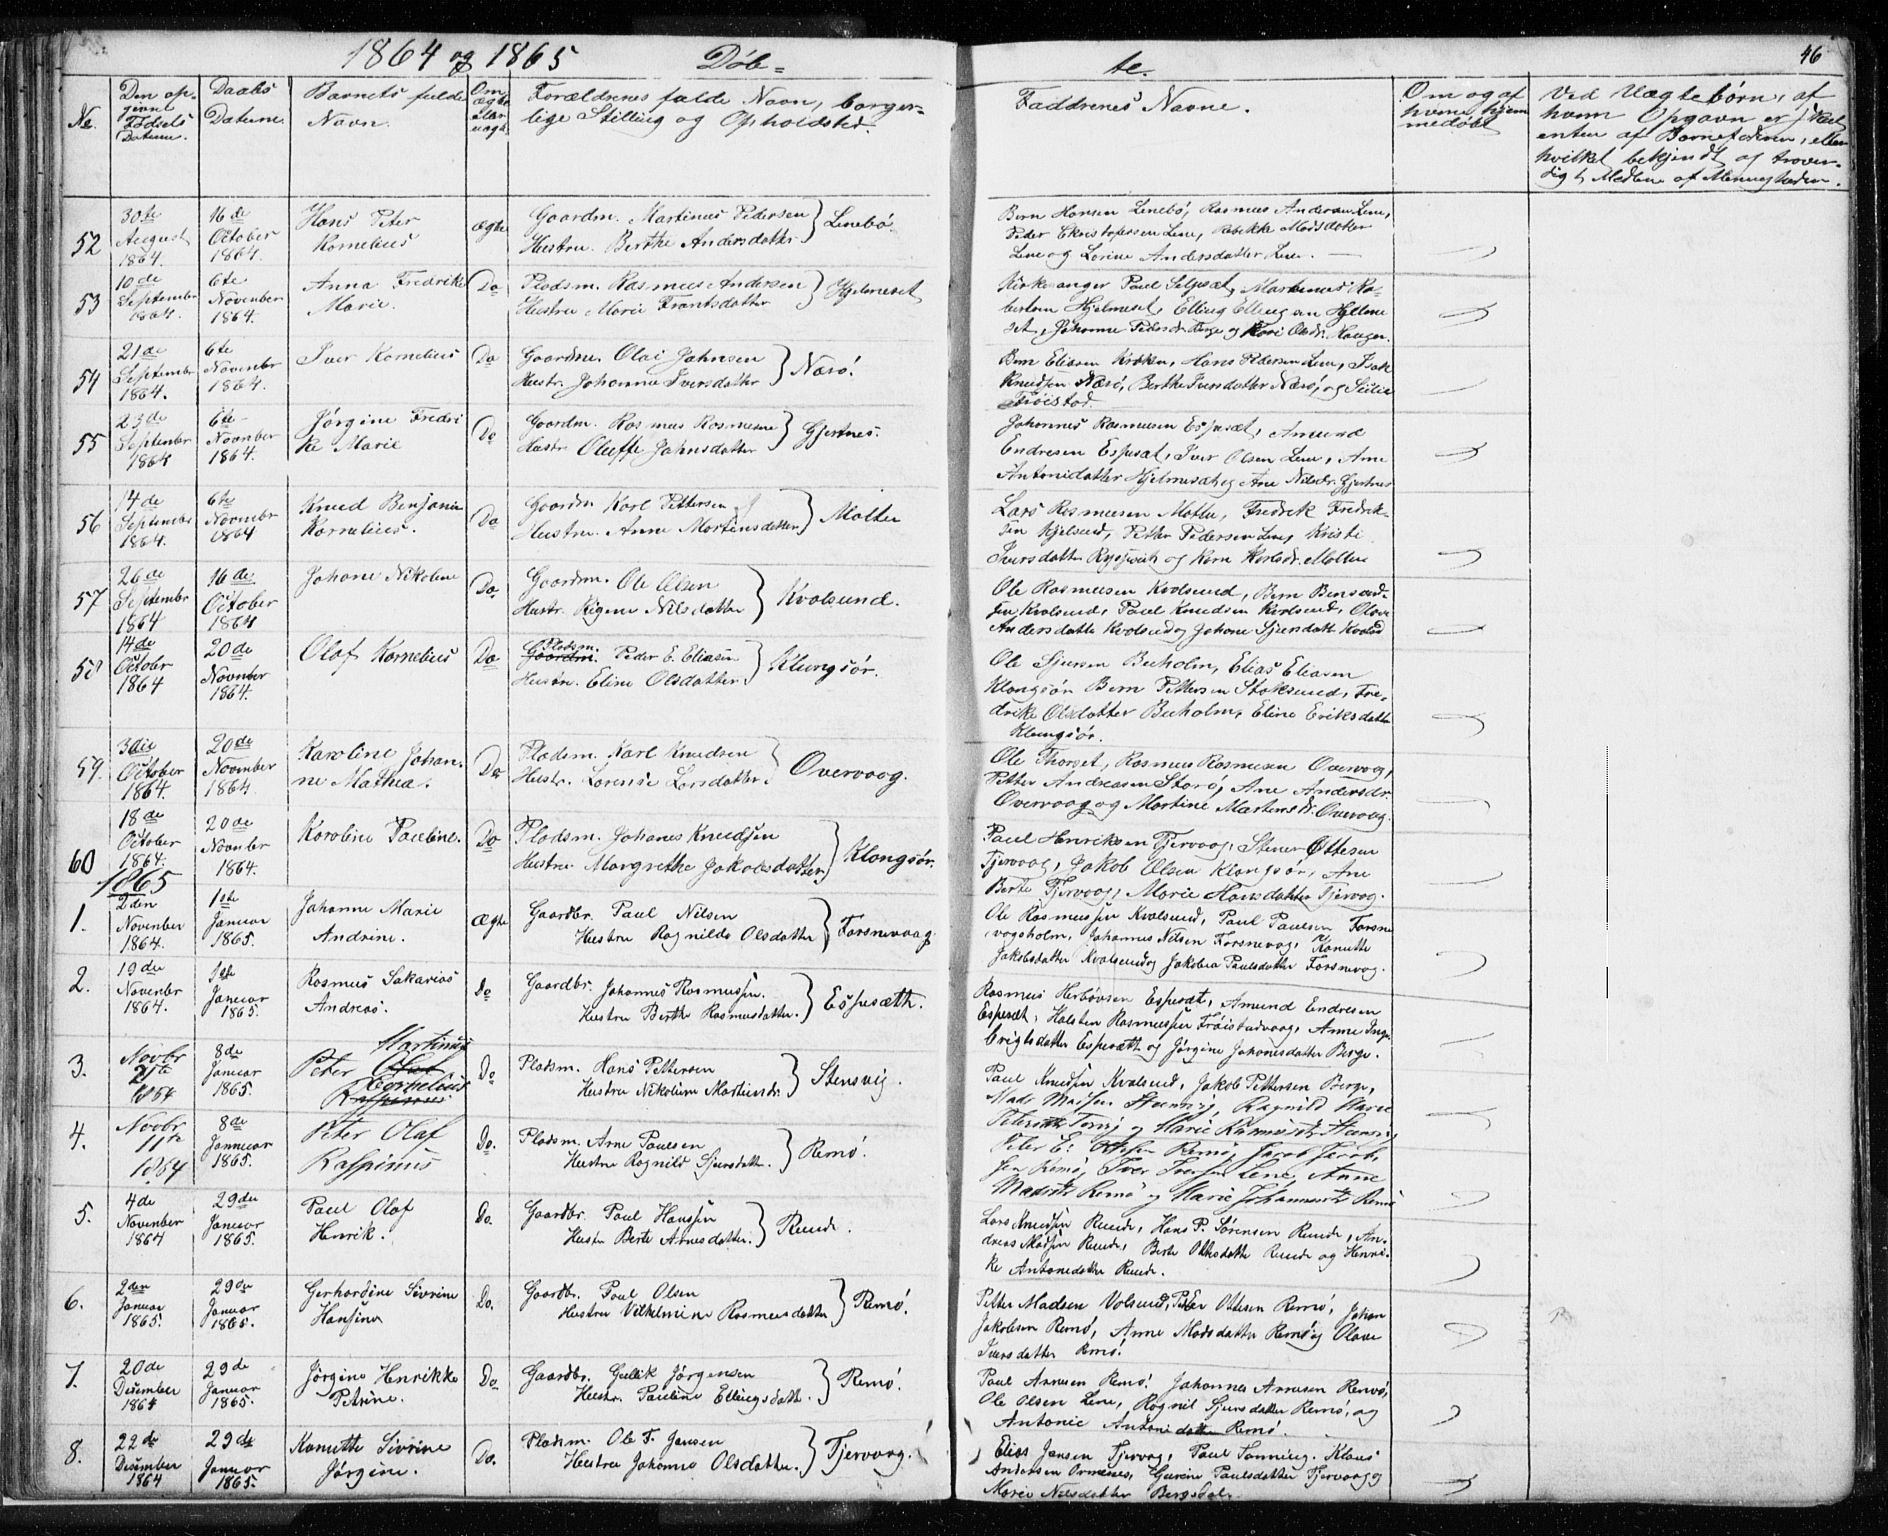 1864 og 1865 Døb=
te. 46
No. Den op- givne Fødsels Datum. Daabs Datum. Barnets fulde Navn. Om ægte eller uægte Forældrenes fulde Navn, borger- lige Stilling og Opholdsted. Faddrenes Navne. Om og af hvem hjem medøbt Ved Uægtebørn, af hvem Opgavn er
enten af Barnefaderen, eller
hvilket bekjendt og trover-
digt Medlem af Menigheden.
52 30te August 1864. 16de October 1864. Hans Peter Kornelius ægte Gaardm. Martinus Pedersen Hustru Berthe Andersdatter Lenebø
Bern Hansen Lenebø, Rasmus Andersen Lene,
Peder Christophersen Lene, Rebekke Madsdatter
Lene og Lorine Andersdatter Lene.
53 10de September 1864. 6te November 1864. Anna Fredrike Marie. Do Pladsm. Rasmus Andersen Hustru Marie Frantsdatter Hjelmeset
Kirkesanger Paul Selsæt, Martinus Ra-
bertsen Hjelmeset, Elling Ellingsen Hjelme
set, Johanne Pedersdr. Berge og Kari Olsdr. Haugen.
54 21de September 1864. 6te November 1864. Iver Kornelius Do Gaardm. Olai Jahnsen Hustr. Johanne Iversdatter Næsø.
Bern Eliasen Kroken, Hans Pedersen Lene, Isak
Knudsen Næsø, Berthe Iversdatter Næsø, og Seilie
Frøistad.
55 23de September 1864 6te November 1864. Jørgine Fredri ke Marie Do Gaardm. Rasmus Rasmussen Hustr Oluffe Jahnsdatter Gjertnes.
Johannes Rasmusen Espesæt, Amund
Endresen Espesæt, Iver Olsen Lene, Ane
Antonidatter Hjelmesæt og Ane Nilsdr. Gjertnes
56 14de September 1864. 6te November 1864 Knud Benjamin Kornelius. Do Gaardm Karl Pettersen Hustru Anne Mortensdatter Moltu
Lars Rasmusen Moltu, Fredrik Fredrik-
sen Kjelsund, Petter Pedersen Lene, Kristi
Iversdatter Ryssevik og Karn Karlsdr. Moltu
57 26de September 1864 16de October 1864 Johane Nikoline Do. Gaardm. Ole Olsen Hustr. Rigine Nilsdatter Kvalsund.
Ole Rasmusen Kvalsund, Bern Bernard-
sen Kvalsund, Paul Knudsen Kvalsund, Olave
Andersdatter Kvalsund og Johane Sjursdatt Kvalsd
58 14de October 1864 20de November 1864. Olaf Kornelius Do Pladsm. Gaardm. Peder E. Eliasen Hustru. Eline Olsdatter Klungsør.
Ole Sjursen Buholm, Elias Eliasen
Klongsør Bern Pettersen Stoksund, Fre-
drike Olsdatter Buholm, Eline Eriksdatter
Klungsør.
59. 3die October 1864. 20de November 1864. Karoline Johan- ne Mathea. Do Pladsm. Karl Knudsen Hustr. Lorense Larsdatter Overvaag.
Ole Thorset, Rasmus Rasmusen Overvaag,
Petter Andreasen Storø, Ane Andersdr.
Overvaag og Martine Martensdr. Overvaag.
60 18de October 1864. 20de November 1864. Karoline Pauline. Do Pladsm. Johanes Knudsen Hustru Margrethe Jakobsdatter Klongsør.
Paul Henriksen Tjervaag, Stener Ottesen
Tjervaag, Jakob Olsen Klongsør, Ane
Berte Tjervaag, Marie Hansdatter Tjervaag.
1865
1. 2den November 1864. 1ste Januar 1865. Johanne Marie Andrine. Ægte Gaardbr. Paul Nilsen Hustru Ragnilde Olsdatter Forsnevaag
Ole Rasmussen Kvalsund, Paul Paulsen Forsne
vagsholm, Johannes Nilsen Forsnevag, Kanutte
Jakobsdatter Kvalsund og Jakobea Paulsdatter Forsnevag.
2. 19de November 1864. 1ste Januar 1865. Rasmus Sakarias Andreas. Do Gaardbr. Johannes Rasmussen. Hustru Berthe Rasmusdatter. Espesæth.
Rasmus Herbøvsen Espesæt, Amund Endresen
Espesæt, Halsten Rasmussen Frøistadvaag, Anne Inge
brigtsdatter Espesæth og Jørgine Johanesdatter Berge.
3. Novbr 21te 1864 8de Januar 1865. Peter Martinus Olaf Cornelius Raspinus Do Pladsm. Hans Pettersen Hustru Nikoline Martinsdr. Stensvig.
Paul Knudsen Kvalsund, Jakob Pettersen Berge,
Mads Madsen Stensvig, Ragnild Marie
Petersdtr Torvig og Marie Rasmusdtr Stensvig
4. Novbr 11te 1864 8de Januuar 1865. Peter Olaf Raspinus Do. Pladsm. Arne Paulsen Hustru Ragnild Sjursdatter. Remø.
Peter E. Ottesen Remø, Jacob Jacob-
sen Remø, Iver Iversen Lene, Anne
Madsdtr Remø og Marie Johannesdtr Remø
5. 4de November 1864 29de Januar 1865. Paul Olaf Henrik. Do. Gaardbr. Paul Hanssen Hustr Berte Arnesdatter. Runde.
Lars Knudsen Runde, Hans P. Sørensen Runde, An-
dreas Madsen Runde, Berte Ottesdatter Runde og Henri-
ke Antonedatter Runde.
6. 2den Januar 1865. 29de Januar 1865. Gerhardine Sivrine Hansine Do. Gaardbr. Paul Olsen Hustru Vilhelmine Rasmusdatter Remø.
Petter Madsen Volsund, Peter Ottesen Remø, Johan
Jakobsen Remø, Anne Madsdatter Remø og Olave
Iversdatter Remø.
7. 20de Desember 1864 29de Januar 1865. Jørgine Henrikke Petrine. Do Gaardbr. Gullik Jørgensen Hustr. Pauline Ellingsdatt. Remø.
Paul Arnesen Remø. Johannes Arnesen Remø,
Ole Olsen Lene, Ragnil Sjursdatter Remø, og
Antonie Antonidatter Remø.
8. 22de Desember 1864 29de Januar 1865. Kanutte Sivrine Jørgine. Do. Pladsm. Ole F. Jansen Hustru Johanne Olsdatter. Tjervaag.
Elias Jansen Tjervaag, Paul Tanning. Klaus
Andersen Ormenes, Gurine Paulsdatter Tjervaag og
Marie Nilsdatter Bergsdal.